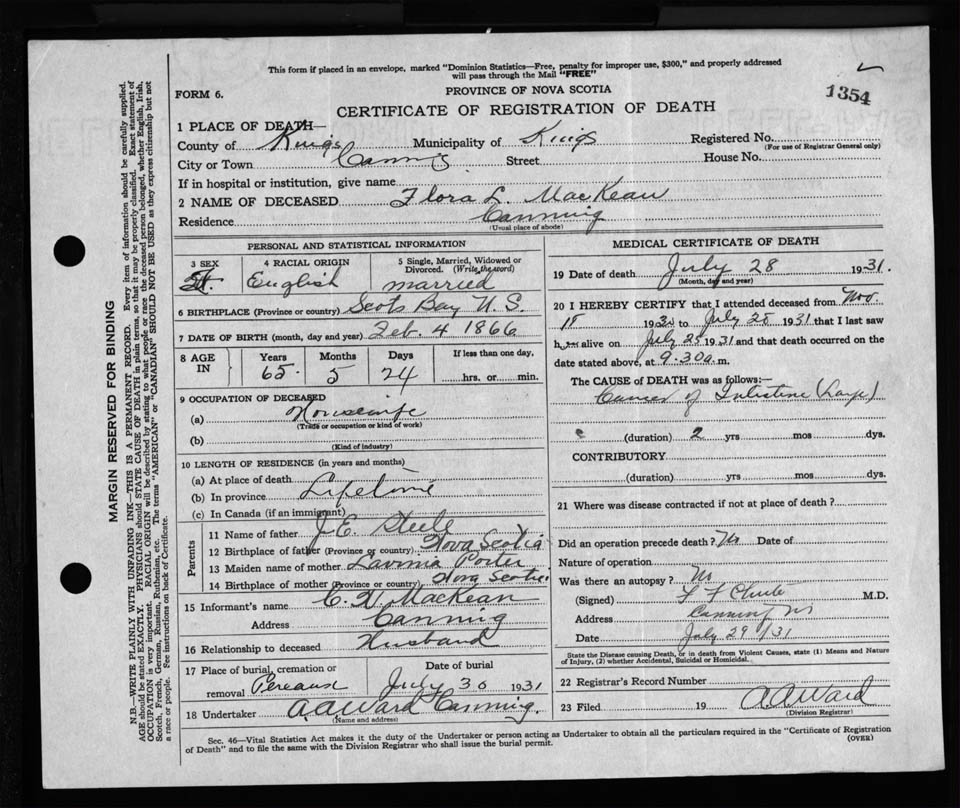 This form if placed in an envelope, marked "Dominion Statistics—Free, penalty for improper use, $300," and properly addressed
will pass through the Mail "FREE"
1354
FORM 6.
PROVINCE OF NOVA SCOTIA
CERTIFICATE OF REGISTRATION OF DEATH
1 PLACE OF DEATH—
County of Kings Municipality of Kings Registered No.
(For use of Registrar General only)
City or Town Canning Street House No.
If in hospital or institution, give name
2 NAME OF DECEASED Flora L. MacKean
Residence Canning
(Usual place of abode)
PERSONAL AND STATISTICAL INFORMATION
3 SEX
4 RACIAL ORIGIN English
5 Single, Married, Widowed or
Divorced. (Write the word)
married
6 BIRTHPLACE (Province or country) Scots Bay N.S.
7 DATE OF BIRTH (month, day and year) Feb. 4 1866
8 AGE IN
Years Months Days If less than one day,
65 5 24 hrs. or min.
9 OCCUPATION OF DECEASED
(a) Housewife
(Trade or occupation or kind of work)
(b)
(Kind of industry)
10 LENGTH OF RESIDENCE (in years and months)
(a) At place of death
(b) In province Lifetime
(c) In Canada (if an immigrant)
Parents
11 Name of father J. E. Steele
12 Birthplace of father (Province or country) Nova Scotia
13 Maiden name of mother Lavinia Porter
14 Birthplace of mother (Province or country) Nova Scotia
15 Informant's name C. N. MacKean
Address Canning
16 Relationship to deceased Husband
17 Place of burial, cremation or
removal Pereaux
Date of burial
July 30 1931
18 Undertaker A.A. Ward Canning.
(Name and address)
MEDICAL CERTIFICATE OF DEATH
19 Date of death July 28 1931.
(Month, day and year)
20 I HEREBY CERTIFY that I attended deceased from Nov.
to July 28 1931 that I last saw
h alive on July 25 1931 and that death occurred on the
date stated above, at 9.30 a.m.
The CAUSE of DEATH was as follows:—
Cancer of Intestine (Large)
(duration) 2 yrs mos dys.
CONTRIBUTORY
(duration) yrs mos dys.
21 Where was disease contracted if not at place of death?
Did an operation precede death? No Date of
Nature of operation
Was there an autopsy? No
(Signed) Chute M.D.
Address Canning NS
Date July 29/31
State the Disease causing Death, or in death from Violent Causes, state (1) Means and Nature
of Injury, (2) whether Accidental, Suicidal or Homicidal.
22 Registrar's Record Number
23 Filed 19 A.A. Ward
(Division Registrar)
Sec. 46—Vital Statistics Act makes it the duty of the Undertaker or person acting as Undertaker to obtain all the particulars required in the "Certificate of Registration
of Death" and to file the same with the Division Registrar who shall issue the burial permit.
(OVER)
MARGIN RESERVED FOR BINDING
N.B.—WRITE PLAINLY WITH UNFADING INK—THIS IS A PERMANENT RECORD. Every item of information should be carefully supplied.
AGE should be stated EXACTLY. PHYSICIANS should STATE CAUSE OF DEATH in plain terms, so that it may be properly classified. Exact statement of
OCCUPATION is very important. RACIAL ORIGIN will be described by stating to what people or race the deceased person belonged, whether English, Irish,
Scotch, French, German, Russian, Ruthenian, etc. The terms "AMERICAN" or "CANADIAN" SHOULD NOT BE USED as they express citizenship but not
a race or people. See instructions on back of Certificate.